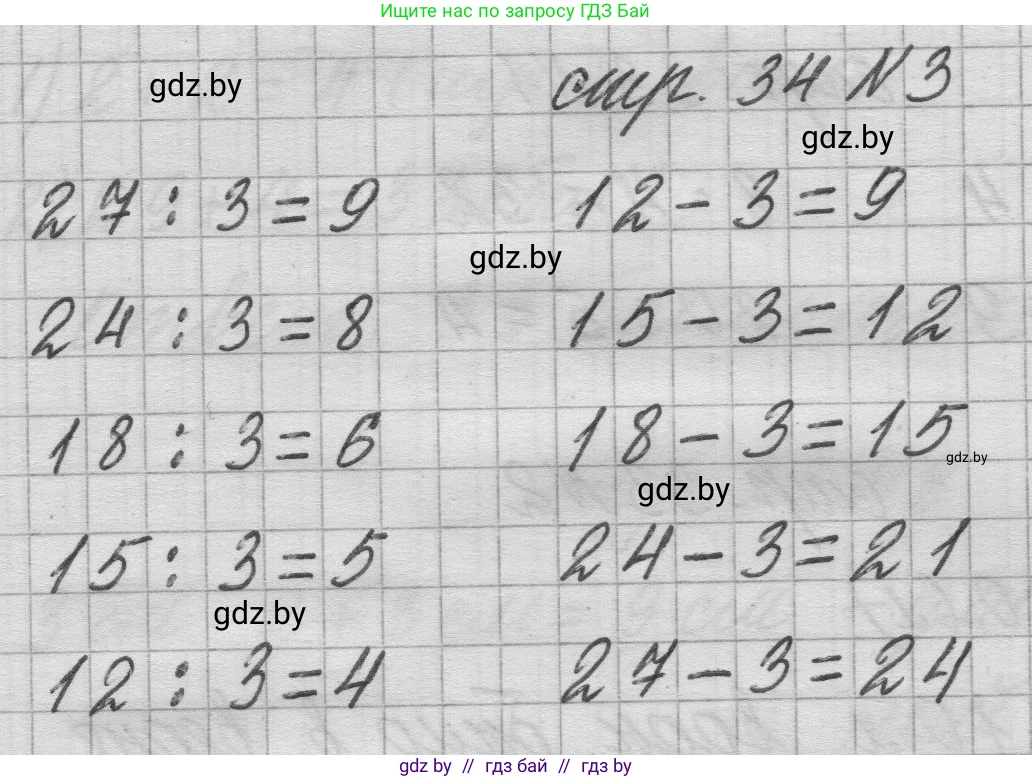 Ищите нас по запросу ГДЗ Бай
gdz.by стр. 34 N 3
gdz.by
27 : 3 = 9 12 - 3 = 9
gdz.by
24 : 3 = 8 15 - 3 = 12
18 : 3 = 6 18 - 3 = 15
gdz.by
gdz.by
15 : 3 = 5 24 - 3 = 21
gdz.by
12 : 3 = 4 27 - 3 = 24
gdz by // гдз бай // гдз by